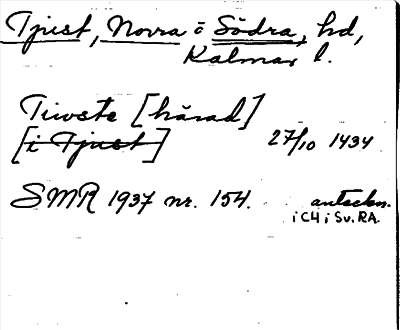 Tjust, Norra o Södra, hd,
Kalmar l.
Tiwste [härad]
[i Tjust] 27/10 1434
SMR 1937 nr. 154. anteckn.
i CH i Sv. RA.